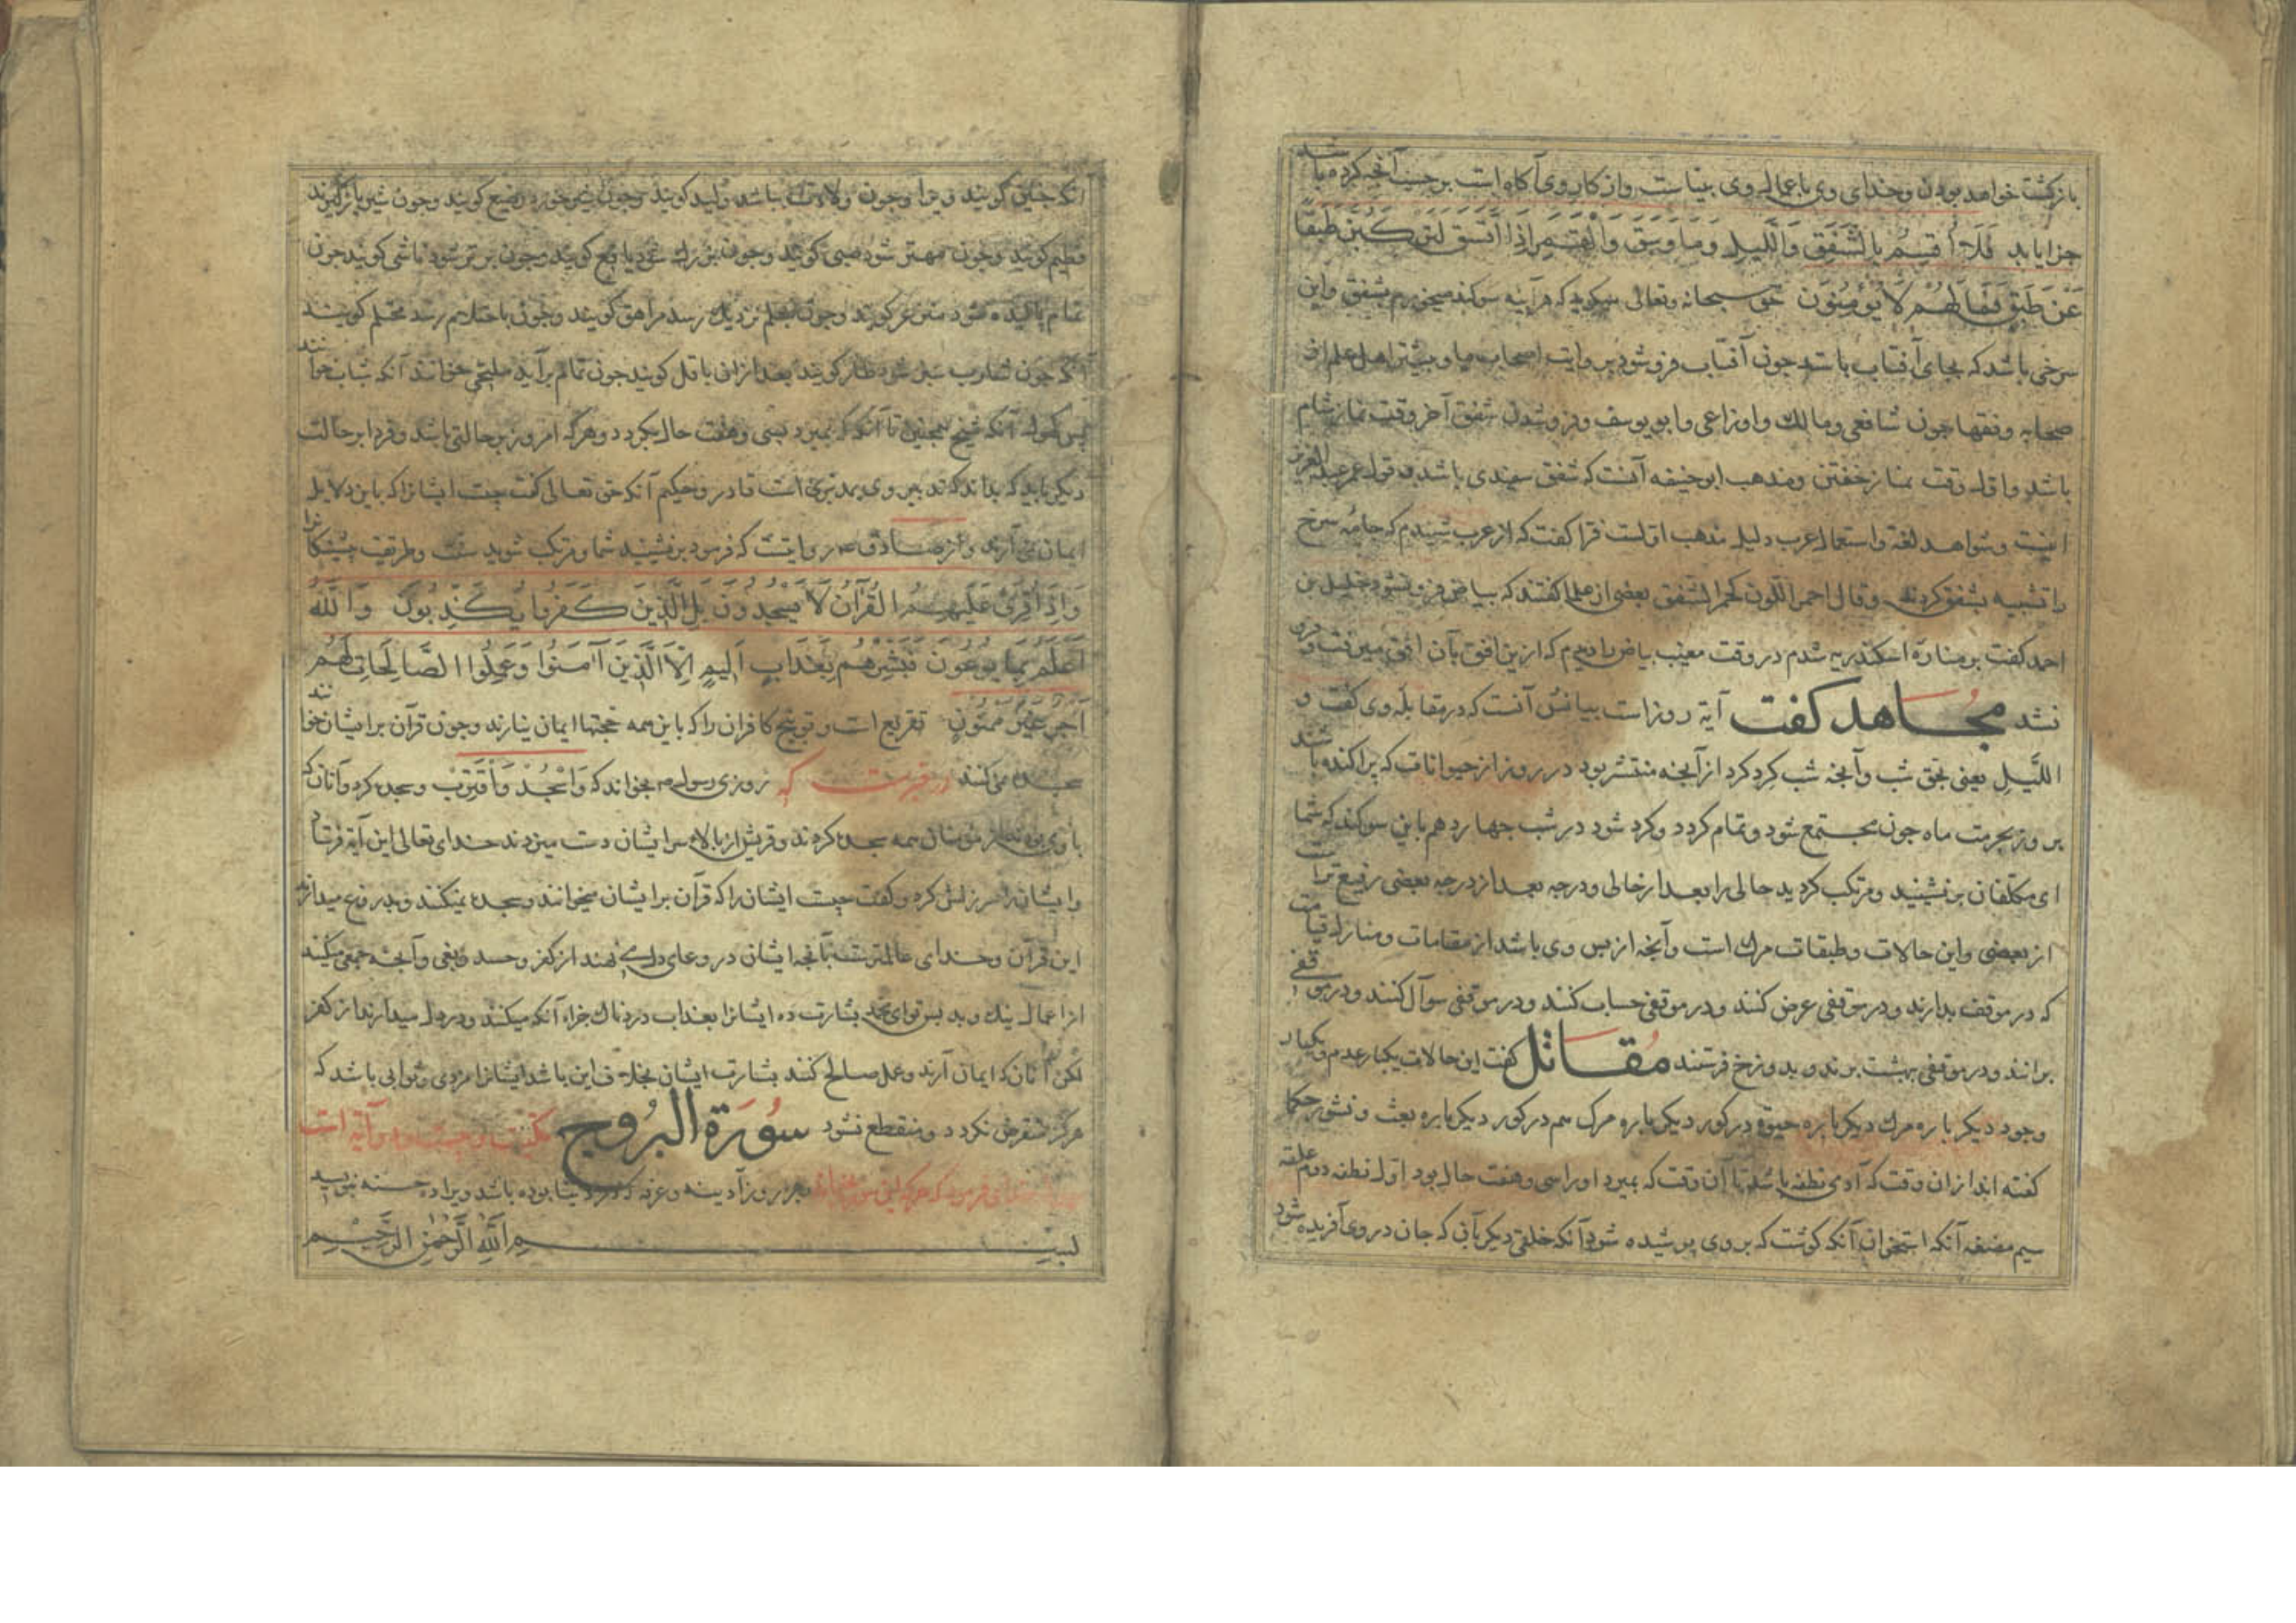 بازگشت خواهد بودن وخدای وی باعمال وی بیناست وازکار وی آگاه است برحسب آنچه کرده باشد
جزا یابد فَلَا أُقْسِمُ بِالشَّفَقِ وَاللَّيْلِ وَمَا وَسَقَ وَالْقَمَرِ إِذَا اتَّسَقَ لَتَرْكَبُنَّ طَبَقًا
عَنْ طَبَقٍ فَمَا لَهُمْ لَا يُؤْمِنُونَ حق سبحانه وتعالی میکوید که هرآینه سوکند میخورم بشفق واین
سرخی باشد که بجای آفتاب باشد جون آفتاب فروشود بروایت اصحاب ما وبیشتر اهل علم از
صحابه وفقها جون شافعی ومالك واوزاعی وابویوسف وفروشدن شفق آخر وقت نماز شام
باشد واول وقت نماز خفتن ومذهب ابوحنیفه آنست که شفق سپیدی باشد وقول عمر عبدالعزیز
اینست وشواهد لغة واستعمال عرب دلیل مذهب اولست فرا کفت که از عرب شنیدم که جامهٔ سرخ
را تشبیه بشفق کردند وقال احمر اللون کحمر الشفق بعضی از علما کفتند که بیاض فرو نشود خلیل بن
احمد کفت برمنارهٔ اسکندریه شدم در وقت مغیب بیاض را دیدم که ازین افق بآن افق میرفت و فرو
نشد مجاهد کفت آیة روز است بیانش آنست که درمقابله وی کفت و
اللَّیلِ یعنی بحق شب وآنچه شب کرد کرد از آنچه منتشر بود در روز از حیوانات که پراکنده باشد
بروز بحرمت ماه جون مجتمع شود وتمام کردد وکرد شود در شب جهاردهم باین سوکند که شما
ای مکلفان برنشینید ومرتکب کردید حالی را بعد از حالی ودرجه بعد از درجه بعضی رفیع تراست
از بعضی واین حالات وطبقات مرك است وآنچه از پس وی باشد از مقامات ومنازل قیامت
که در موقف بدارند ودر موقفی عرض کنند ودر موقفی حساب کنند ودر موقفی سوآل کنند ودر موقفی
برانند ودر موقفی ببهشت برند وبدوزخ فرستند مُقَاتل کفت این حالات یکبار عدم ویکبار
وجود دیکر باره مرك دیکر باره حیوة در کور دیکر باره مرك هم در کور دیکر باره بعث ونشور حکما
کفته اند از ان وقت که آدمی نطفه باشد تا آن وقت که بمیرد او را سی وهفت حال بود اول نطفه دوم علقه
سیم مضغه آنکه استخوان آنکه کوشت که بروی پوشیده شود آنکه خلقی دیکر بآن که جان در وی آفریده شود
آنکه جنین کویند ویرا وجون ولادت باشد ولید کویند وجون شیر خورد رضیع کویند وجون شیر بازکیرند
فطیم کویند وجون مهتر شود صبی کویند وجون بزرك شود یافع کویند وجون برتر شود ناشی کویند جون
تمام بالیده شود مترعرع کویند وجون بحلم نزدیك رسد مراهق کویند وجون باحتلام رسد محتلم کویند
آنکه جون شارب سبز شود طار کویند بعد از ان باقل کویند جون تمام برآید ملتحی خوانند آنکه شاب خوانند
پس کهول آنکه شیخ همجنین تا آنکه که بمیرد بسی وهفت حال بکردد وهرکه امروز برحالتی باشد وفردا برحالت
دیکر باید که بداند که تدبیر وی بمدبری است قادر وحکیم آنکه حق تعالی کفت چیست ایشانرا که باین دلایل
ایمان نمی آرند واز صادق روایتست که فرمود برنشینید شما ومرتکب شوید سنت وطریقت پیشینکانرا
وَإِذَا قُرِئَ عَلَيْهِمُ الْقُرْآنُ لَا يَسْجُدُونَ بَلِ الَّذِينَ كَفَرُوا يُكَذِّبُونَ وَاللَّهُ
أَعْلَمُ بِمَا يُوعُونَ فَبَشِّرْهُمْ بِعَذَابٍ أَلِيمٍ إِلَّا الَّذِينَ آمَنُوا وَعَمِلُوا الصَّالِحَاتِ لَهُمْ
أَجْرٌ غَيْرُ مَمْنُونٍ تقریع است وتوبیخ کافران را که باین همه حجتها ایمان نیارند وجون قرآن برایشان خوانند
سجده نمی کنند در خبرست که روزی رسول بخواند که وَاسْجُدْ وَاقْتَرِبْ وسجده کرد وآنان که
باوی بودند از مؤمنان همه سجده کردند وقریش از بالای سر ایشان دست میزدند خدای تعالی این آیة فرستاد
وایشان را سرزنش کرد وکفت چیست ایشان را که قرآن برایشان میخوانند وسجده نمیکنند وبدروغ میدارند
این قرآن وخدای عالمترست بآنچه ایشان در وعای دل می نهند از کفر وحسد وبغی وآنچه جمع میکنند
از اعمال نیك وبد پس تو ای محمد بشارت ده ایشانرا بعذاب دردناك جزاء آنکه میکنند ودر دل میدارند از کفر
لکن آنان که ایمان آرند وعمل صالح کنند بشارت ایشان بخلاف این باشد ایشانرا مزدی وثوابی باشد که
هرکز منقرض نکردد ومنقطع نشود سُورَة البُرُوج مکیست وبیست ودو آیة است
فرمود که هرکه این سوره بخواند بهر روز آدینه وعرفه که در دنیا بوده باشد ویرا ده حسنه بنویسد
بسـم اللّٰه الرَّحمٰن الرَّحیم